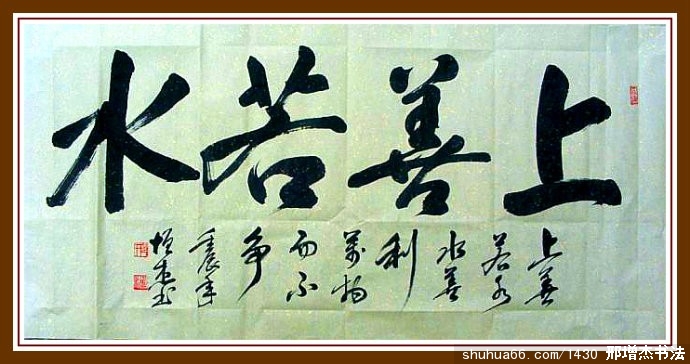 上善若水
上善
若水
水善
利
萬物
而不
争
壬辰年
增杰书
shuhua66.com/1430 邢增杰书法